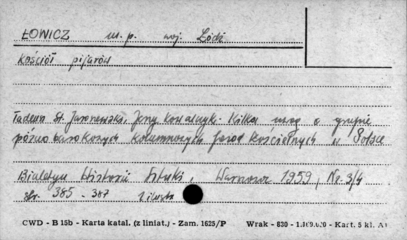 ŁOWICZ m.p. woj. Łódź
Kościół pijarów
Tadeusz St. Jaroszewski, Jerzy Kowalczyk - Kilka uwag o grupie
późnobarokowych kolumnowych fasad kościelnych w Polsce
Biuletyn Historii Sztuki, Warszawa 1959, Nr. 3/4
str. 385 - 387
CWD - B 15b - Karta katal. (z liniat.) - Zam. 1625/P Wrak - 630 - 1.109.000 - Kart. 5 kl. A1